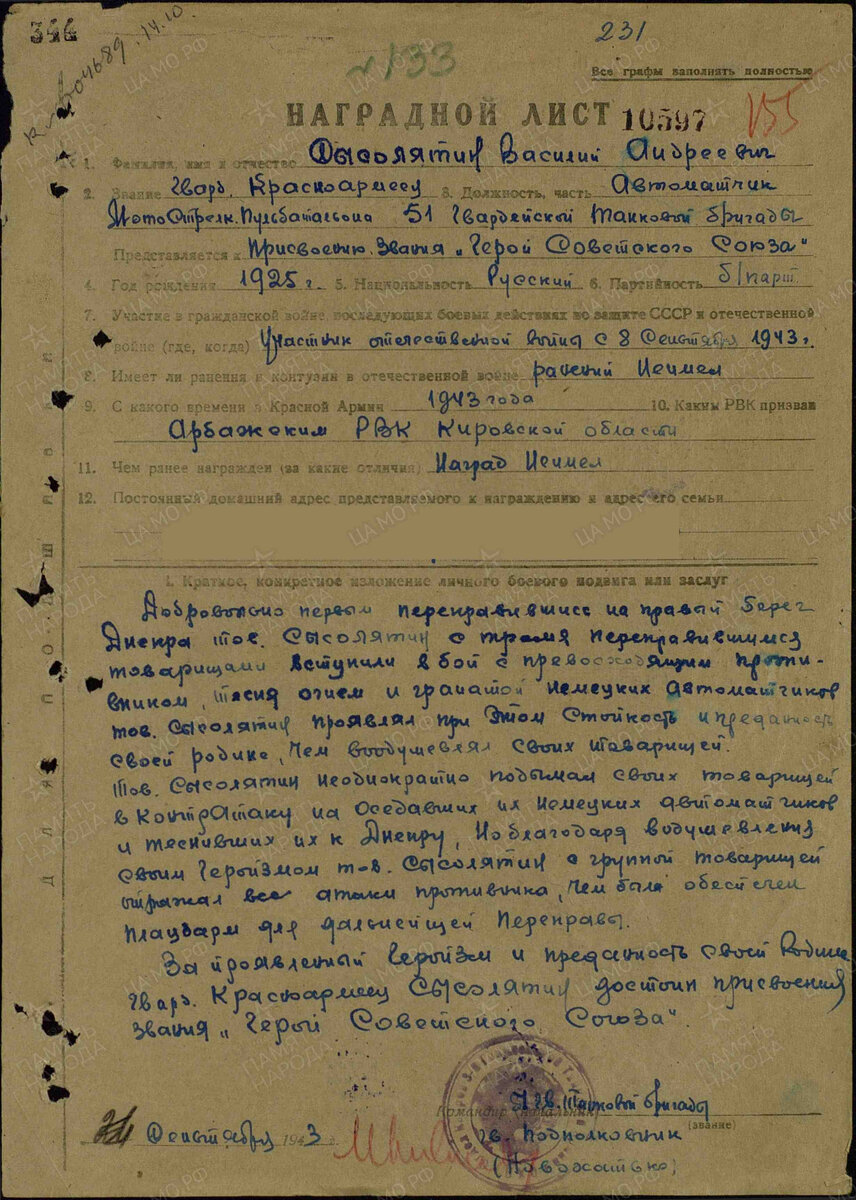 344
231
№133
Все графы заполнять полностью
НАГРАДНОЙ ЛИСТ 10597 155
1. Фамилия, имя и отчество Сысолятин Василий Андреевич
2. Звание Гвард. Красноармеец 3. Должность, часть Автоматчик
МотоСтрелк. Пульбатальона 51 Гвардейской Танковой бригады
Представляется к Присвоению звания „Герой Советского Союза"
4. Год рождения 1925 г. 5. Национальность Русский 6. Партийность б/парт
7. Участие в гражданской войне, последующих боевых действиях по защите СССР и отечественной
войне (где, когда) Участник отечественной войны с 8 Сентября 1943 г.
8. Имеет ли ранения и контузии в отечественной войне ранений Неимел
9. С какого времени в Красной Армии 1943 года 10. Каким РВК призван
Арбажским РВК Кировской области
11. Чем ранее награжден (за какие отличия) Наград Неимел
12. Постоянный домашний адрес представляемого к награждению и адрес его семьи
I. Краткое, конкретное изложение личного боевого подвига или заслуг
Добровольно первым переправившись на правый берег
Днепра тов. Сысолятин с тремя переправившимися
товарищами вступили в бой с превосходящим проти-
вником, тесня огнем и гранатой Немецких автоматчиков
тов. Сысолятин проявлял при этом стойкость и преданность
своей родине, чем воодушевлял своих товарищей.
Тов. Сысолятин неоднократно подымал своих товарищей
в контратаку на оседавших их немецких автоматчиков
и теснивших их к Днепру, Но благодаря водушевления
своим Геройзмом тов. Сысолятин с группой товарищей
отражал все атаки противника, чем был обеспечен
плацдарм для дальнейшей Переправы.
За проявленный Геройзм и преданность своей Родине
Гвард. Красноармеец Сысолятин достоин присвоения
звания „Герой Советского Союза".
Командир (начальник) Гв. Танковой бригады
(звание)
Сентября 1943 гв. подполковник
(Новохатько)
Для подшивки
ПАМЯТЬ НАРОДА
ЦА МО РФ